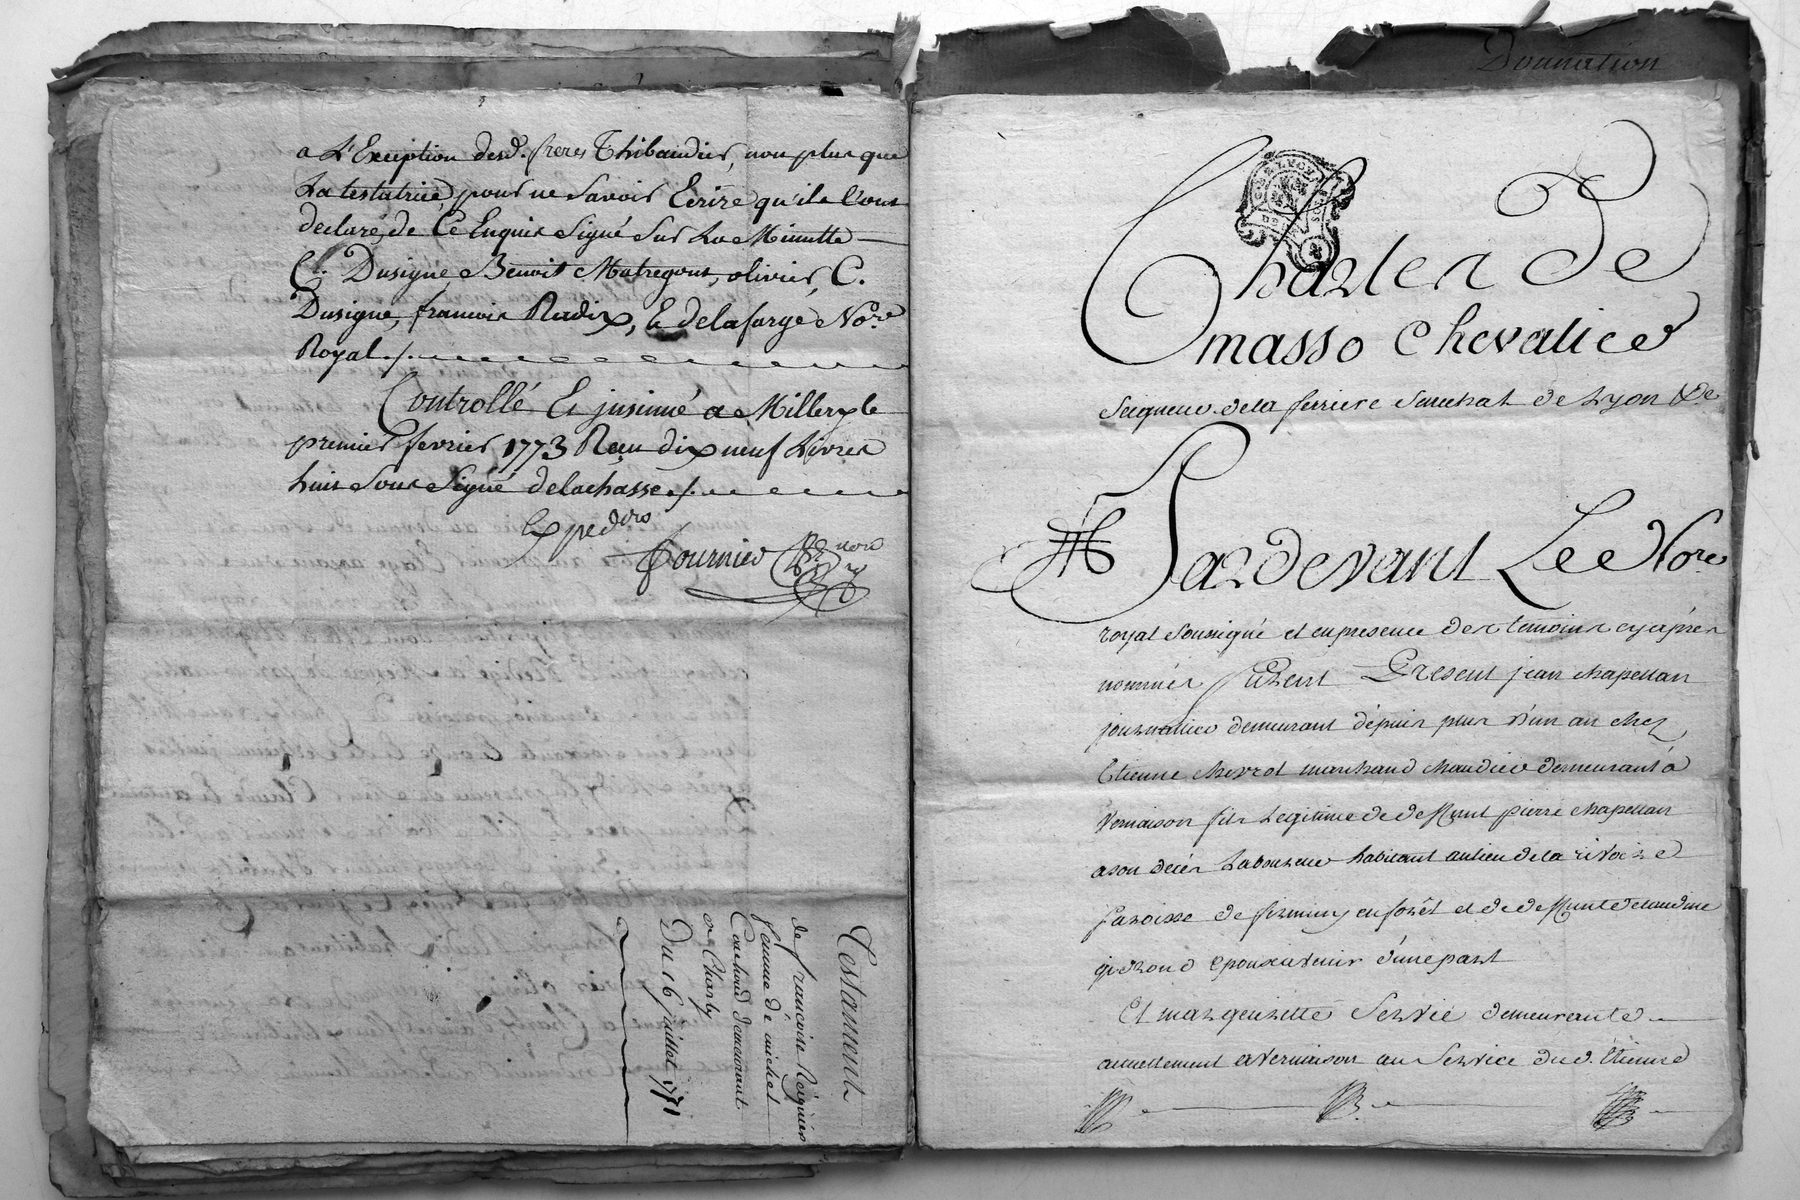 a L'Exception desd. freres Thibaudier, non plus que
La testatrice pour ne Savoir Ecrire qu'ils l'ont
declaré, de Ce Enquis Signé Sur La Minutte
C. Dusigne, Benoit Matregout, olivier, C.
Dusigne, francois Radix, & delafarge No.re
Royal ./.
Controllé Et jnsinué a Millery le
premier fevrier 1773 Recu dix neuf Livres
huit Sous Signé delachasse ./.
Exped
Fournier
Testament
de francoise Reignier
femme de michel
Couchoud demeurant
a Charly
Du 16 juillet 1771
Donnation
Charles De
masso Chevalier
Seigneur de la ferriere Senechal de Lyon &c
Pardevant Le No.re
royal Soussigné et en presence des temoins cy après
nommés furent Present jean chapellan
journalier demeurant depuis plus d'un an chez
Etienne chevrot marchand chaudier demeurant à
Vernaison fils Legitime de deffunt pierre chapellan
a son deces Laboureur habitant au lieu de la rivoire
Paroisse de firminy en forêt et de deffunte claudine
girond Epoux avenir d'une part
Et margueritte Servie demeurante
actuellement a Vernaison au Service du d. Etienne